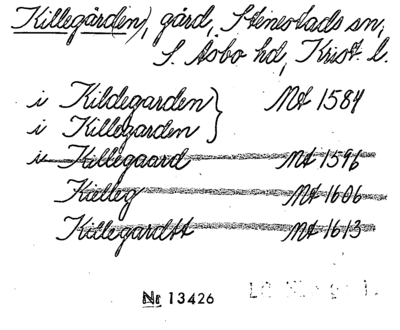 Killegården), gård, Stenestads sn,
S. Åsbo hd, Krist. l.
i Kildegarden } Mt 1584
i Killegarden
i Killegaard Mt 1596
Kielleg Mt 1606
Killegardtt Mt 1613
Nr 13426